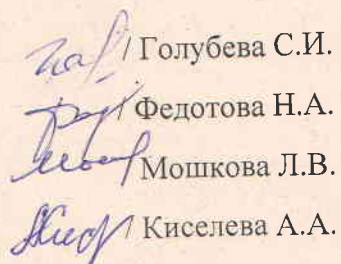 / Голубева С.И.
/ Федотова Н.А.
/ Мошкова Л.В.
/ Киселева А.А.